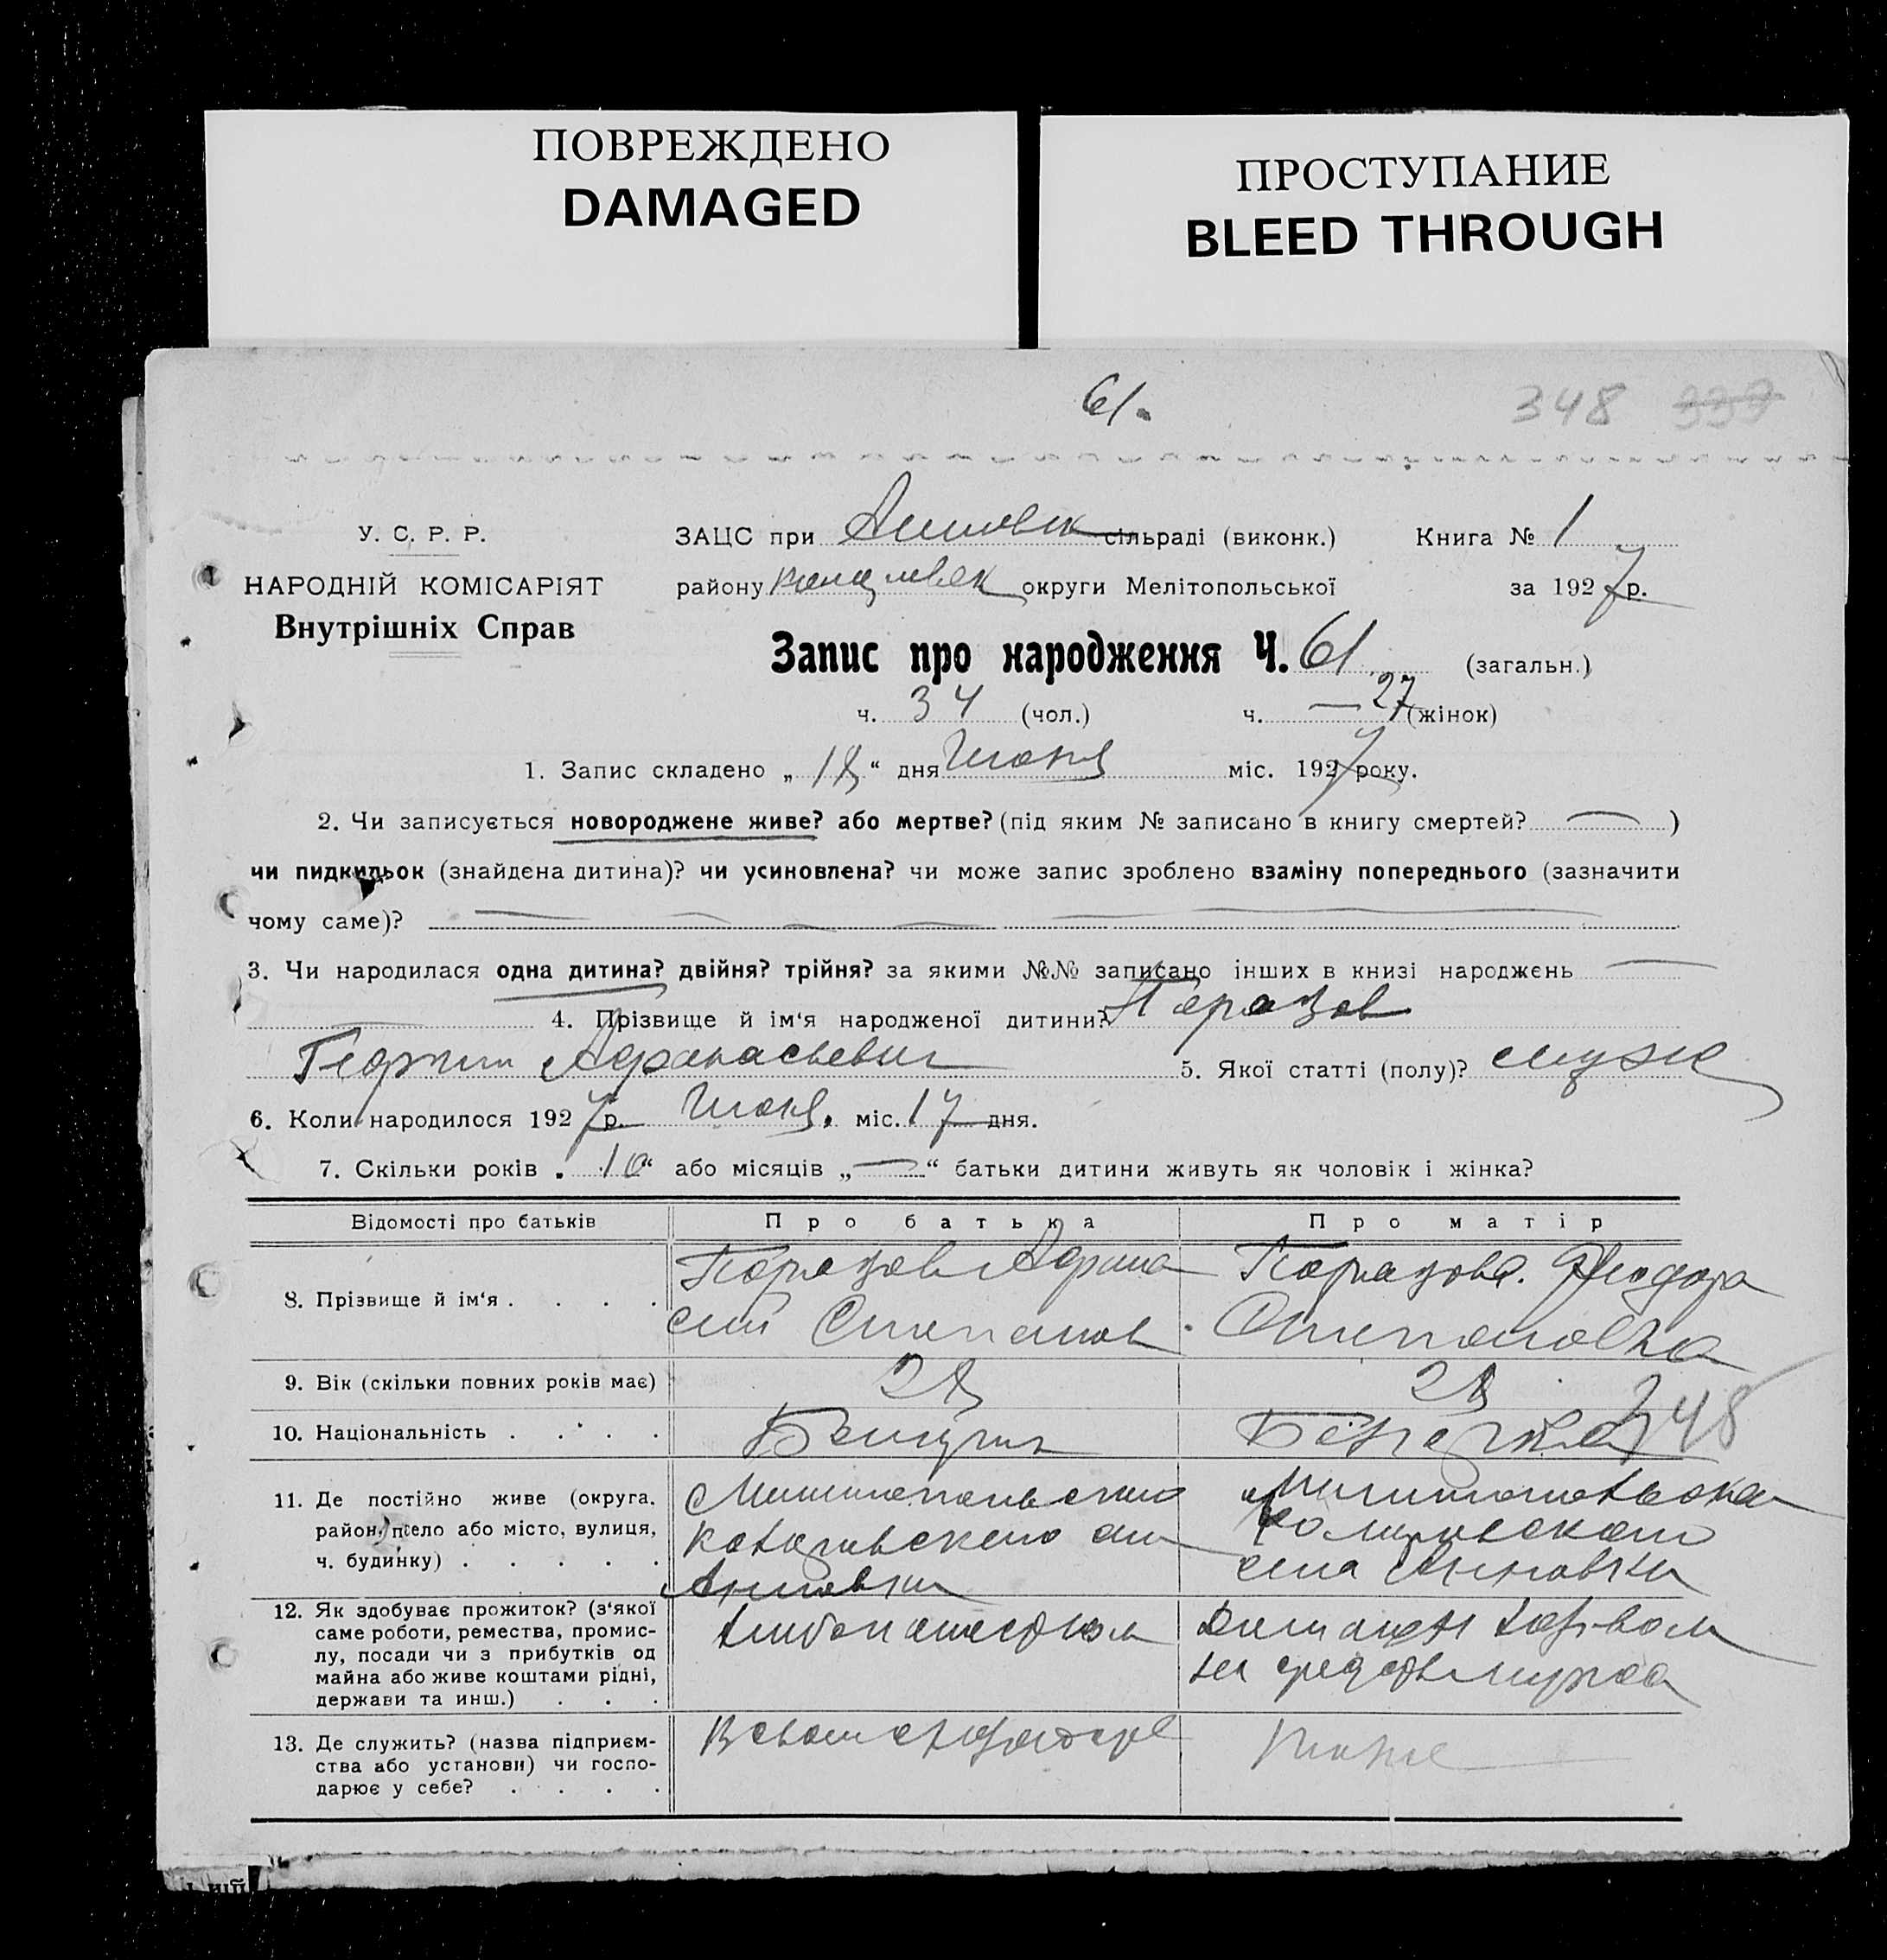 ПОВРЕЖДЕНО
DAMAGED
ПРОСТУПАНИЕ
BLEED THROUGH
61.
348 337
У. С. Р. Р.
НАРОДНІЙ КОМІСАРІЯТ
Внутрішніх Справ
ЗАЦС при сільраді (виконк.) Книга № 1
району округи Мелітопольської за 1927 р.
Запис про народження Ч. 61 (загальн.)
ч. 34 (чол.) ч. — 27 (жінок)
1. Запис складено „18“ дня Июня міс. 1927 року.
2. Чи записується новороджене живе? або мертве? (під яким № записано в книгу смертей? — )
чи пидкидьок (знайдена дитина)? чи усиновлена? чи може запис зроблено взаміну попереднього (зазначити
чому саме)?
3. Чи народилася одна дитина? двійня? трійня? за якими №№ записано інших в книзі народжень —
4. Прізвище й ім'я народженої дитини?
Георгий Афанасьевич 5. Якої статті (полу)? муж
6. Коли народилося 1927 р. Июня. міс. 17 дня.
7. Скільки років „10“ або місяців „—“ батьки дитини живуть як чоловік і жінка?
Відомості про батьків Про батька Про матір
8. Прізвище й ім'я . . . . Афана
сий Степанов Степановна
9. Вік (скільки повних років має) 28 28
348
10. Національність . . . .
11. Де постійно живе (округа,
район, село або місто, вулиця,
ч. будинку) . . . . .
Анновки села Анновки
12. Як здобуває прожиток? (з'якої
саме роботи, ремества, промис-
лу, посади чи з прибутків од
майна або живе коштами рідні,
держави та инш.) . . .
Хлебопашеством
на средств мужа
13. Де служить? (назва підприєм-
ства або установи) чи госпо-
дарює у себе? . . . .